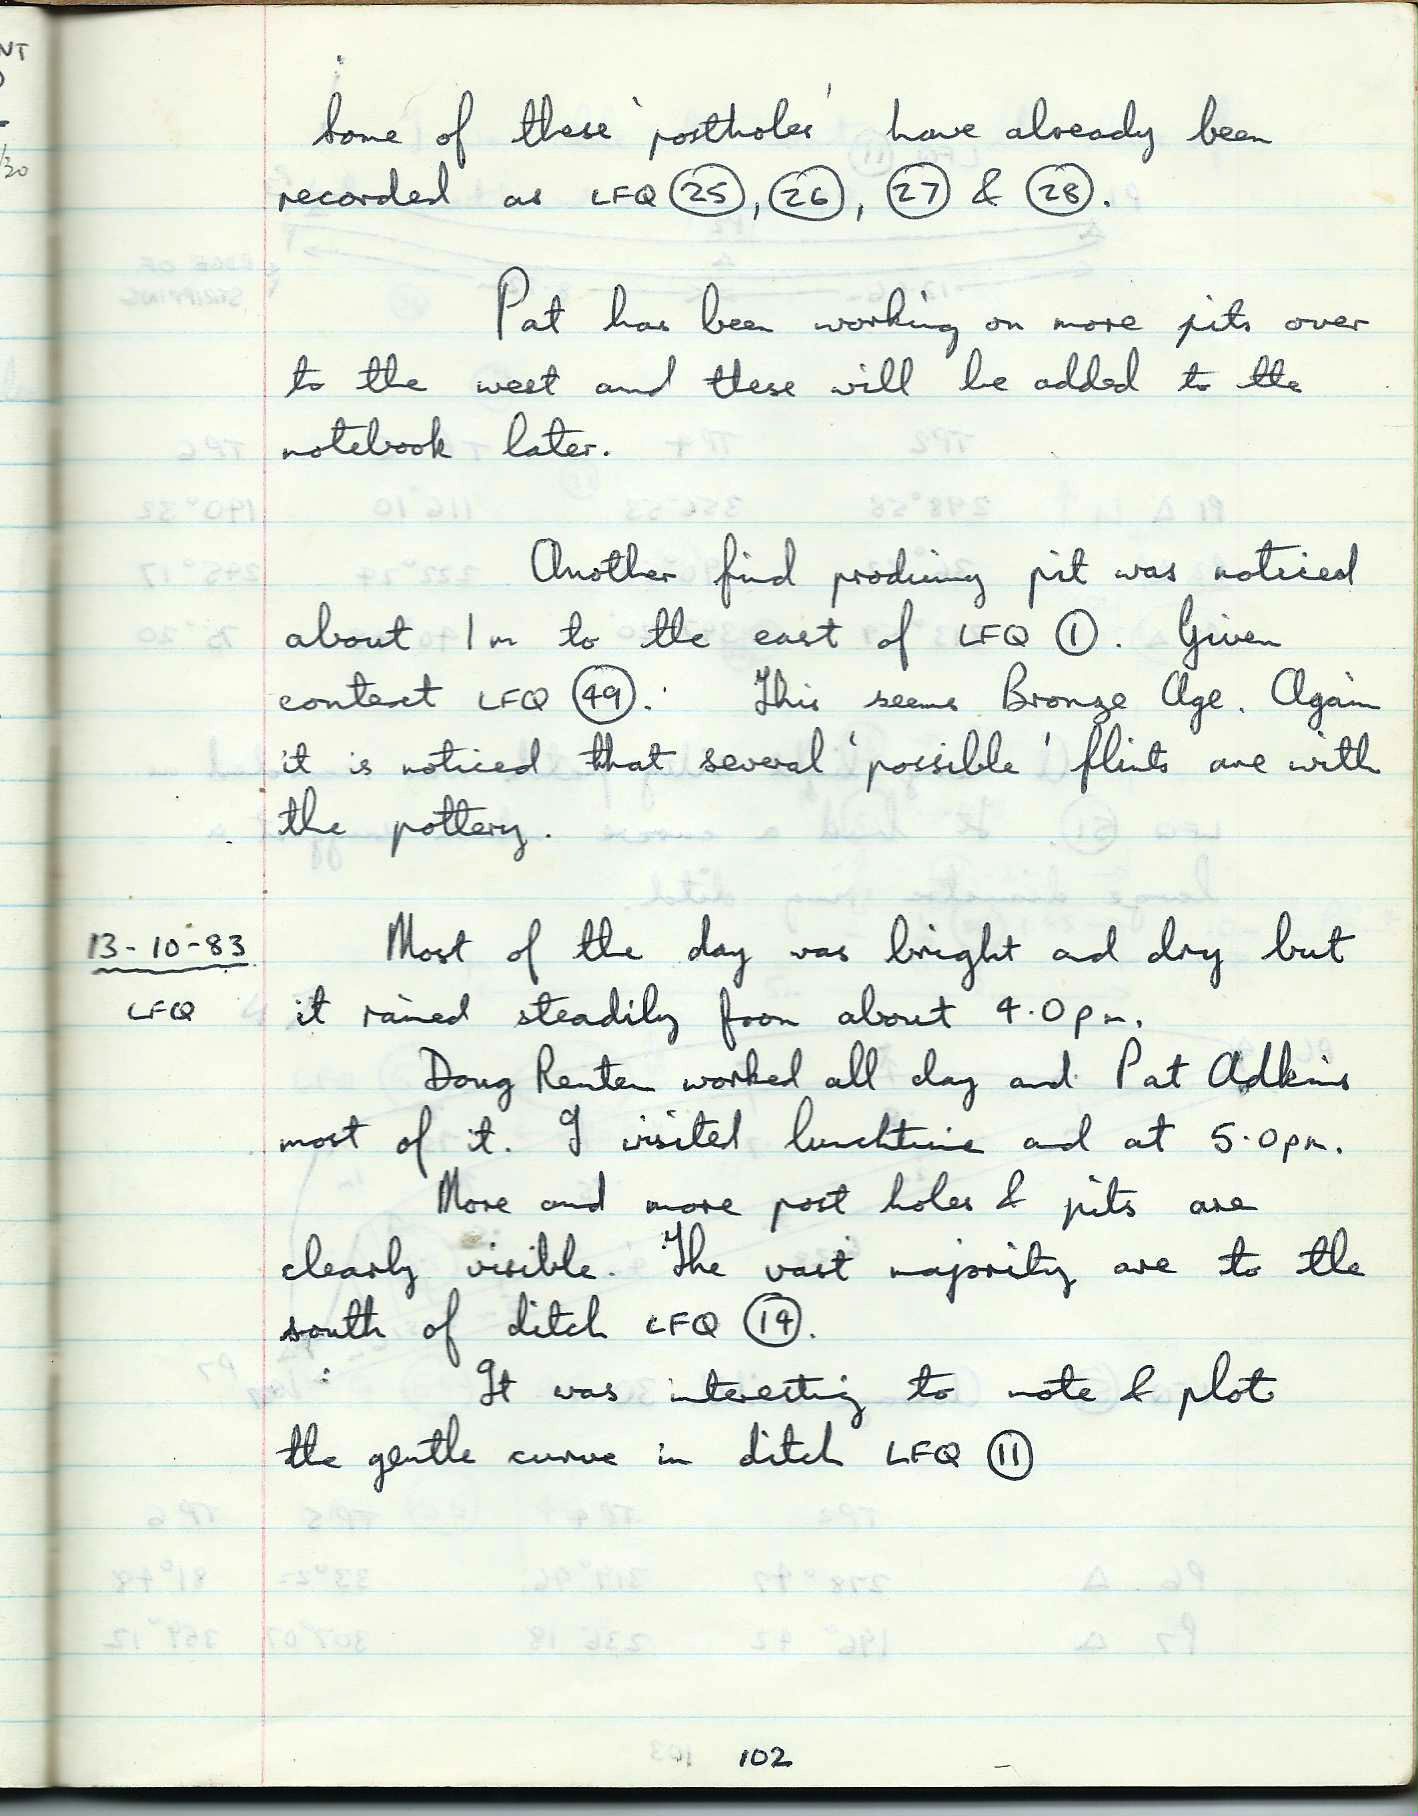 Some of these 'postholes' have already been
recorded as LFQ 25, 26, 27 & 28.
Pat has been working on more pits over
to the west and these will be added to the
notebook later.
Another find producing pit was noticed
about 1m to the east of LFQ 1. Given
context LFQ 49. This seems Bronze Age. Again
it is noticed that several 'possible' flints are with
the pottery.
13-10-83
LFQ
Most of the day was bright and dry but
it rained steadily from about 4.0pm.
Doug Renten worked all day and Pat Adkins
most of it. I visited lunchtime and at 5.0pm.
More and more post holes & pits are
clearly visible. The vast majority are to the
south of ditch LFQ 14.
It was interesting to note & plot
the gentle curve in ditch LFQ 11
102